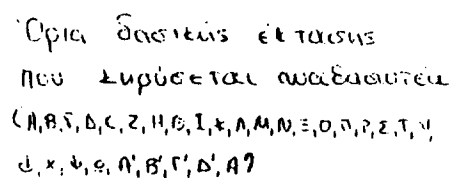 Όρια δασικής έκτασης
που κηρύσσεται αναδασωτέα
(Α,Β,Γ,Δ,Ε,Ζ,Η,Θ,Ι,Κ,Λ,Μ,Ν,Ξ,Ο,Π,Ρ,Σ,Τ,Υ,
Φ,Χ,Ψ,Ω,Α',Β',Γ',Δ',Α)